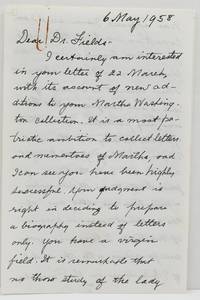 6 May 1958
Dear Dr. Fields-
I certainly am interested
in your letter of 22 March,
with its account of new ad-
ditions to your Martha Washing-
ton collection. It is a most pa-
triotic ambition to collect letters
and mementoes of Martha, and
I can see you have been highly
successful. Your judgment is
right in deciding to prepare
a biography instead of letters
only. You have a virgin
field. It is remarkable that
no thoro study of the lady